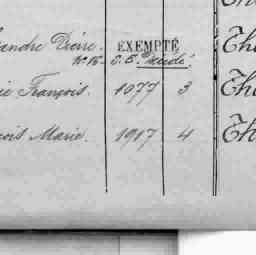 andre Pierre. EXEMPTÉ Th
Décédé.
ie François. 1077 3 Th
çois Marie. 1917 4 Th